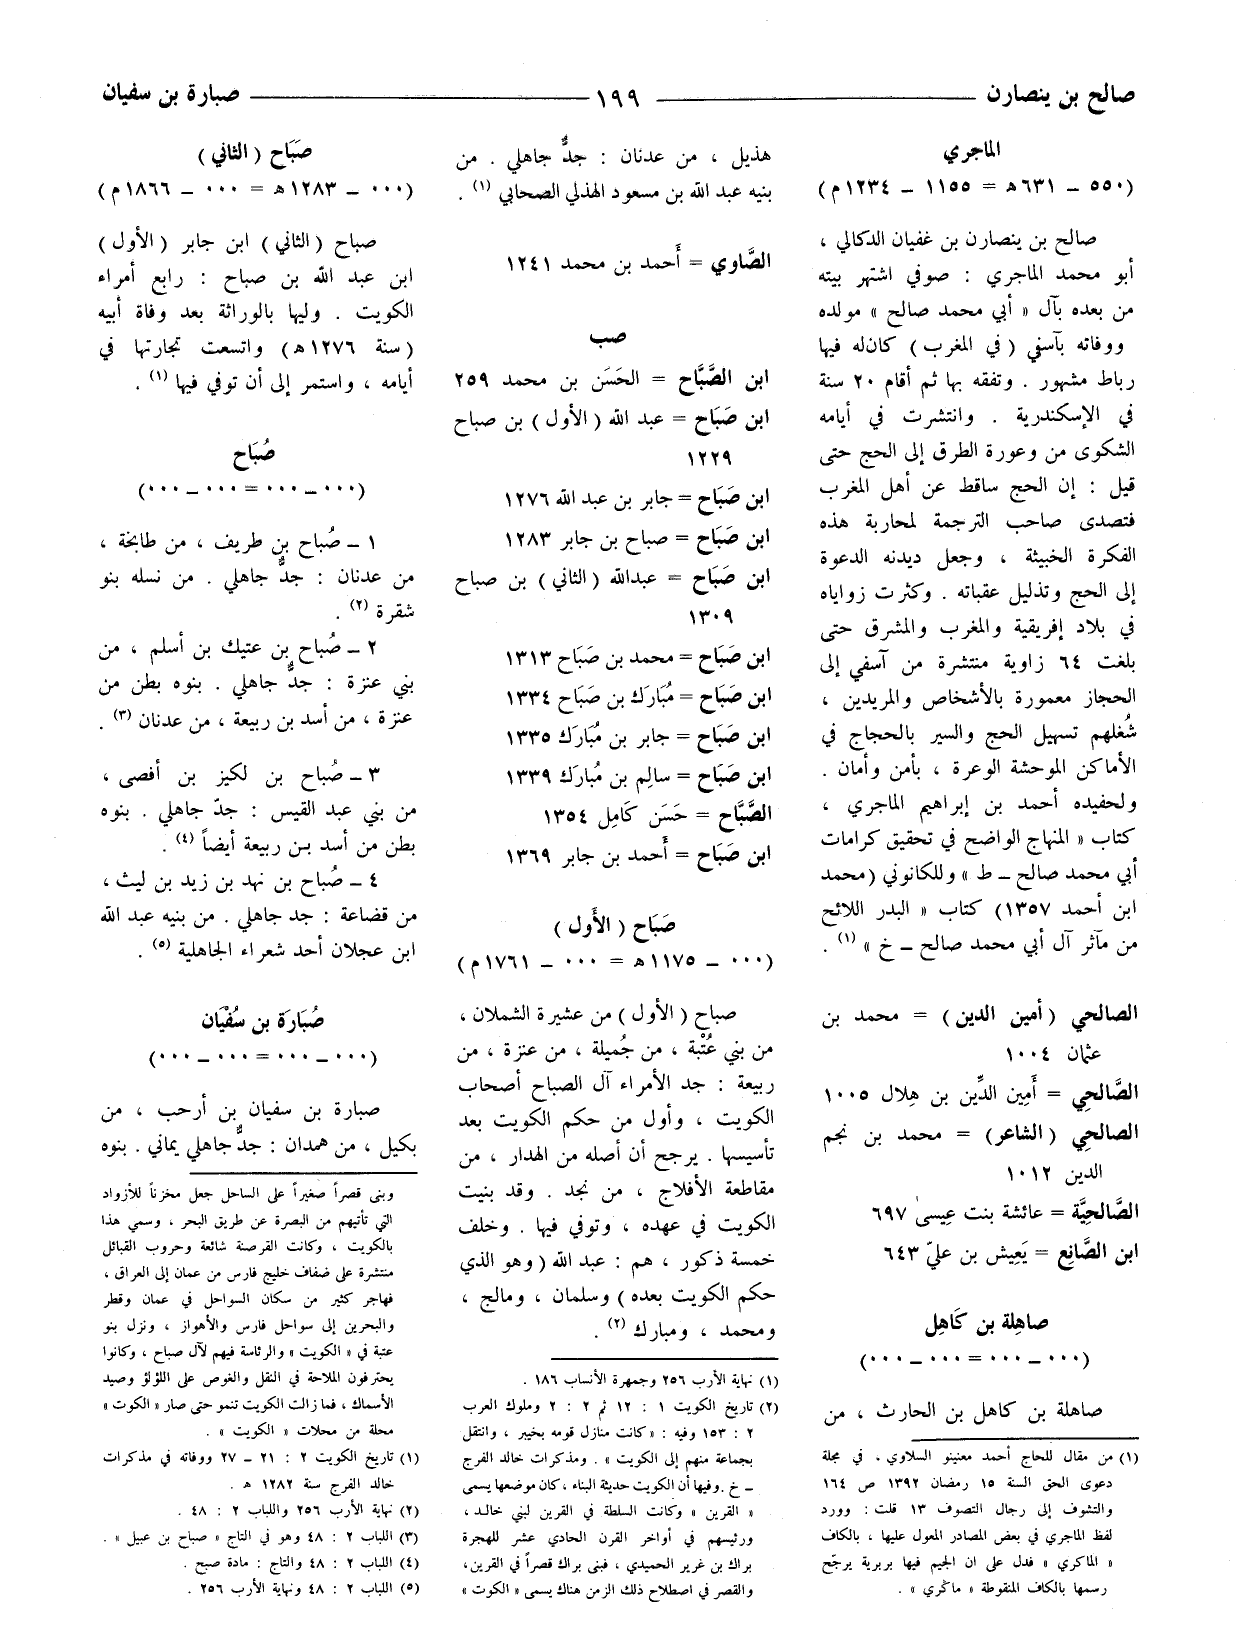 صالح بن ينصارن ــــ ١٩٩ ــــ صبارة بن سفيان
الماجري
(٥٥٠ ـ ٦٣١هـ = ١١٥٥ ـ ١٢٣٤م)
صالح بن ينصارن بن غفيان الدكالي ،
أبو محمد الماجري : صوفي اشتهر بيته
من بعده بآل « أبي محمد صالح » مولده
ووفاته بآسفي (في المغرب) كان‌له فيها
رباط مشهور . وتفقه بها ثم أقام ٢٠ سنة
في الإسكندرية . وانتشرت في أيامه
الشكوى من وعورة الطرق إلى الحج حتى
قيل : إن الحج ساقط عن أهل المغرب
فتصدى صاحب الترجمة لمحاربة هذه
الفكرة الخبيثة ، وجعل ديدنه الدعوة
إلى الحج وتذليل عقباته . وكثرت زواياه
في بلاد إفريقية والمغرب والمشرق حتى
بلغت ٦٤ زاوية منتشرة من آسفي إلى
الحجاز معمورة بالأشخاص والمريدين ،
شُغلهم تسهيل الحج والسير بالحجاج في
الأماكن الموحشة الوعرة ، بأمن وأمان .
ولحفيده أحمد بن إبراهيم الماجري ،
كتاب « المنهاج الواضح في تحقيق كرامات
أبي محمد صالح ـ ط » وللكانوني (محمد
ابن أحمد ١٣٥٧) كتاب « البدر اللائح
من مآثر آل أبي محمد صالح ـ خ » (١) .
الصالحي (أمين الدين) = محمد بن
عثمان ١٠٠٤
الصَّالحِي = أَمِين الدِّين بن هِلال ١٠٠٥
الصالحي (الشاعر) = محمد بن نجم
الدين ١٠١٢
الصَّالحِيَّة = عائشة بنت عِيسىٰ ٦٩٧
ابن الصَّانِع = يَعِيش بن عليّ ٦٤٣
صاهِلة بن كَاهِل
(٠٠٠ ـ ٠٠٠ = ٠٠٠ ـ ٠٠٠)
صاهلة بن كاهل بن الحارث ، من
(١) من مقال للحاج أحمد معنينو السلاوي ، في مجلة
دعوى الحق السنة ١٥ رمضان ١٣٩٢ ص ١٦٤
والتشوف إلى رجال التصوف ١٣ قلت : وورد
لفظ الماجري في بعض المصادر المعول عليها ، بالكاف
« الماكري » فدل على ان الجيم فيها بربرية يرجّح
رسمها بالكاف المنقوطة « ماكري » .
هذيل ، من عدنان : جدٌّ جاهلي . من
بنيه عبد الله بن مسعود الهذلي الصحابي (١) .
الصَّاوي = أَحمد بن محمد ١٢٤١
صب
ابن الصَّبَّاح = الحَسَن بن محمد ٢٥٩
ابن صَبَاح = عبد الله (الأول) بن صباح
١٢٢٩
ابن صَبَاح = جابر بن عبد الله ١٢٧٦
ابن صَبَاح = صباح بن جابر ١٢٨٣
ابن صَبَاح = عبدالله (الثاني) بن صباح
١٣٠٩
ابن صَبَاح = محمد بن صَبَاح ١٣١٣
ابن صَبَاح = مُبَارك بن صَبَاح ١٣٣٤
ابن صَبَاح = جابر بن مُبَارَك ١٣٣٥
ابن صَبَاح = سالِم بن مُبارَك ١٣٣٩
الصَّبَّاح = حَسَن كَامِل ١٣٥٤
ابن صَبَاح = أَحمد بن جابر ١٣٦٩
صَبَاح (الأَول)
(٠٠٠ ـ ١١٧٥هـ = ٠٠٠ ـ ١٧٦١م)
صباح (الأول) من عشيرة الشملان ،
من بني عُتْبة ، من جُميلة ، من عنزة ، من
ربيعة : جد الأمراء آل الصباح أصحاب
الكويت ، وأول من حكم الكويت بعد
تأسيسها . يرجح أن أصله من الهدار ، من
مقاطعة الأفلاج ، من نجد . وقد بنيت
الكويت في عهده ، وتوفي فيها . وخلف
خمسة ذكور ، هم : عبد الله (وهو الذي
حكم الكويت بعده) وسلمان ، ومالج ،
ومحمد ، ومبارك (٢) .
(١) نهاية الأرب ٢٥٦ وجمهرة الأنساب ١٨٦ .
(٢) تاريخ الكويت ١ : ١٢ ثم ٢ : ٢ وملوك العرب
٢ : ١٥٣ وفيه : «كانت منازل قومه بخيبر ، وانتقل
بجماعة منهم إلى الكويت » . ومذكرات خالد الفرج
ـ خ . وفيها أن الكويت حديثة البناء ، كان موضعها يسمى
« القرين » وكانت السلطة في القرين لبني خالد ،
ورئيسهم في أواخر القرن الحادي عشر للهجرة
براك بن غرير الحميدي ، فبنى براك قصراً في القرين،
والقصر في اصطلاح ذلك الزمن هناك يسمى « الكوت »
صَبَاح (الثاني)
(٠٠٠ ـ ١٢٨٣هـ = ٠٠٠ ـ ١٨٦٦م)
صباح (الثاني) ابن جابر (الأول)
ابن عبد الله بن صباح : رابع أمراء
الكويت . وليها بالوراثة بعد وفاة أبيه
(سنة ١٢٧٦هـ) واتسعت تجارتها في
أيامه ، واستمر إلى أن توفي فيها (١) .
صُبَاح
(٠٠٠ ـ ٠٠٠ = ٠٠٠ ـ ٠٠٠)
١ ـ صُباح بن طريف ، من طابخة ،
من عدنان : جدٌّ جاهلي . من نسله بنو
شقرة (٢) .
٢ ـ صُباح بن عتيك بن أسلم ، من
بني عنزة : جدٌّ جاهلي . بنوه بطن من
عنزة ، من أسد بن ربيعة ، من عدنان (٣) .
٣ ـ صُباح بن لكيز بن أفصى ،
من بني عبد القيس : جدّ جاهلي . بنوه
بطن من أسد بـن ربيعة أيضاً (٤) .
٤ ـ صُباح بن نهد بن زيد بن ليث ،
من قضاعة : جد جاهلي . من بنيه عبد الله
ابن عجلان أحد شعراء الجاهلية (٥) .
صُبَارَة بن سُفْيَان
(٠٠٠ ـ ٠٠٠ = ٠٠٠ ـ ٠٠٠)
صبارة بن سفيان بن أرحب ، من
بكيل ، من همدان : جدٌّ جاهلي يماني . بنوه
وبنى قصراً صغيراً على الساحل جعل مخزناً للأزواد
التي تأتيهم من البصرة عن طريق البحر ، وسمي هذا
بالكويت ، وكانت القرصنة شائعة وحروب القبائل
منتشرة على ضفاف خليج فارس من عمان إلى العراق ،
فهاجر كثير من سكان السواحل في عمان وقطر
والبحرين إلى سواحل فارس والأهواز ، ونزل بنو
عتبة في « الكويت » والرئاسة فيهم لآل صباح ، وكانوا
يحترفون الملاحة في النقل والغوص على اللؤلؤ وصيد
الأسماك ، فما زالت الكويت تنمو حتى صار « الكوت »
محلة من محلات « الكويت » .
(١) تاريخ الكويت ٢ : ٢١ ـ ٢٧ ووفاته في مذكرات
خالد الفرج سنة ١٢٨٢ هـ .
(٢) نهاية الأرب ٢٥٦ واللباب ٢ : ٤٨ .
(٣) اللباب ٢ : ٤٨ وهو في التاج « صباح بن عبيل » .
(٤) اللباب ٢ : ٤٨ والتاج : مادة صبح .
(٥) اللباب ٢ : ٤٨ ونهاية الأرب ٢٥٦ .